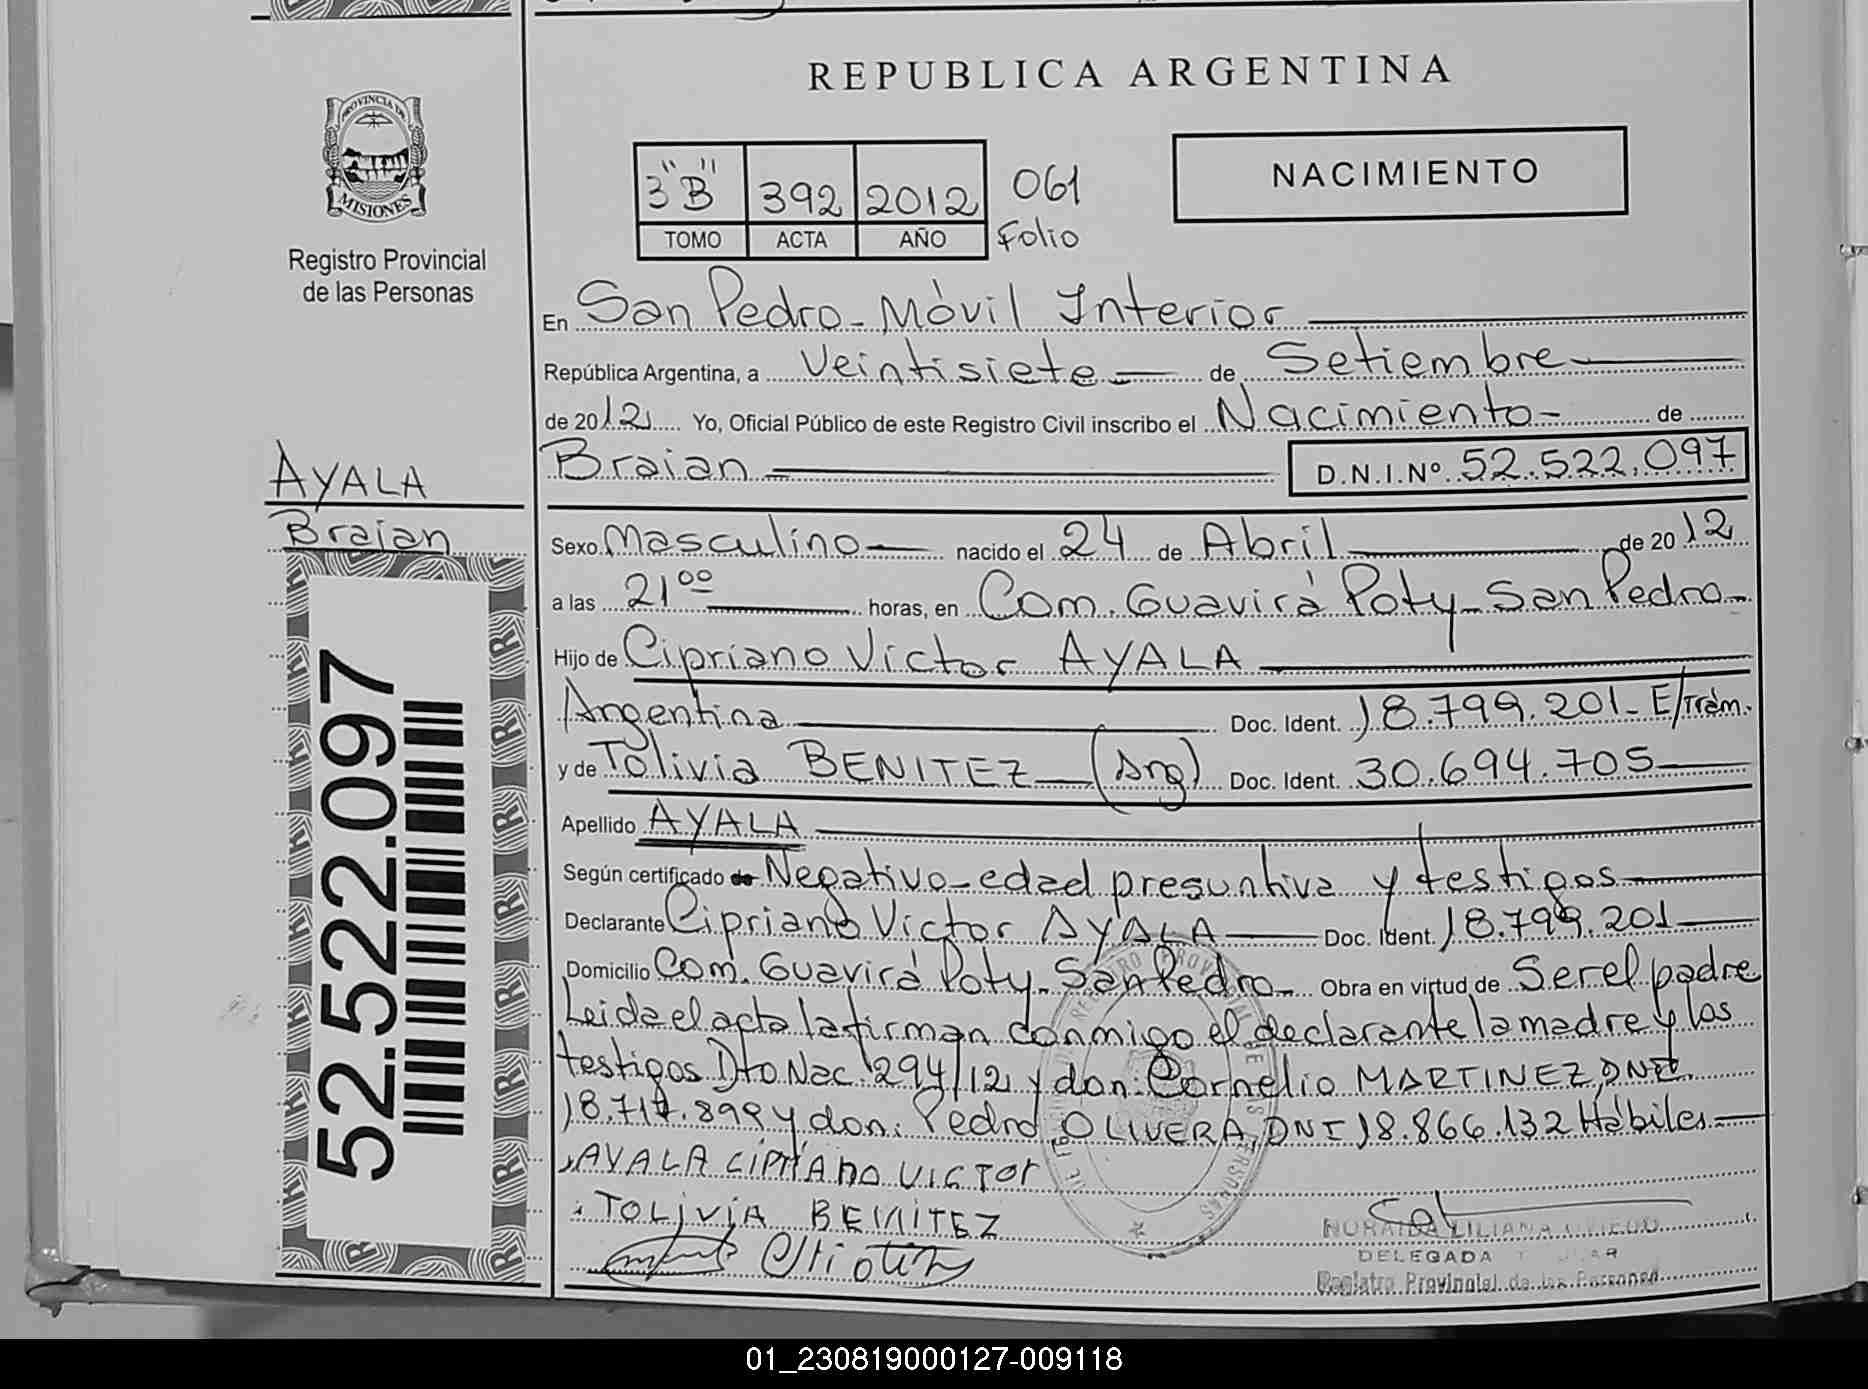 REPUBLICA ARGENTINA
PROVINCIA DE
MISIONES
Registro Provincial
de las Personas
3 "B" 392 2012 061
TOMO ACTA AÑO Folio
NACIMIENTO
En San Pedro - Móvil Interior
República Argentina, a Veintisiete de Setiembre
de 2012 Yo, Oficial Público de este Registro Civil inscribo el Nacimiento - de
Braian D.N.I.Nº 52.522.097
AYALA
Braian
52.522.097
Sexo Masculino nacido el 24 de Abril de 2012
a las 21 00 horas, en Com. Guavirá Poty - San Pedro -
Hijo de Cipriano Victor AYALA
Argentina Doc. Ident. 18.799.201 - E/Trám.
y de Tolivia BENITEZ (Arg) Doc. Ident. 30.694.705
Apellido AYALA
Según certificado de Negativo - edad presuntiva y testigos
Declarante Cipriano Victor AYALA Doc. Ident. 18.799.201
Domicilio Com. Guavirá Poty - San Pedro - Obra en virtud de Ser el padre
Leida el acta la firman conmigo el declarante la madre y los
testigos Dto Nac. 294/12 y don: Cornelio MARTINEZ, DNI
18.717.899 y don: Pedro OLIVERA, DNI 18.866.132 Hábiles. -
AYALA CIPRIANO VICTOR
TOLIVIA BENITEZ
NORAIDA LILIANA OVIEDO
DELEGADA
Registro Provincial de las Personas
01_230819000127-009118